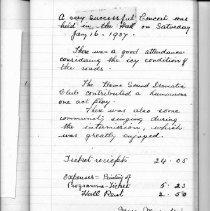 A very successful Concert was
held in the Hall on Saturday
Jan 16 - 1937.
There was a good attendance
considering the icy condition of
the roads.
The Howe Sound Dramatic
Club contributed a humorous
one act play.
There was also some
community singing during
the intermission, which
was greatly enjoyed.
Ticket receipts 24.05
Expenses - Printing of
Programme - Tickets 5.23
Hall Rent 2.50